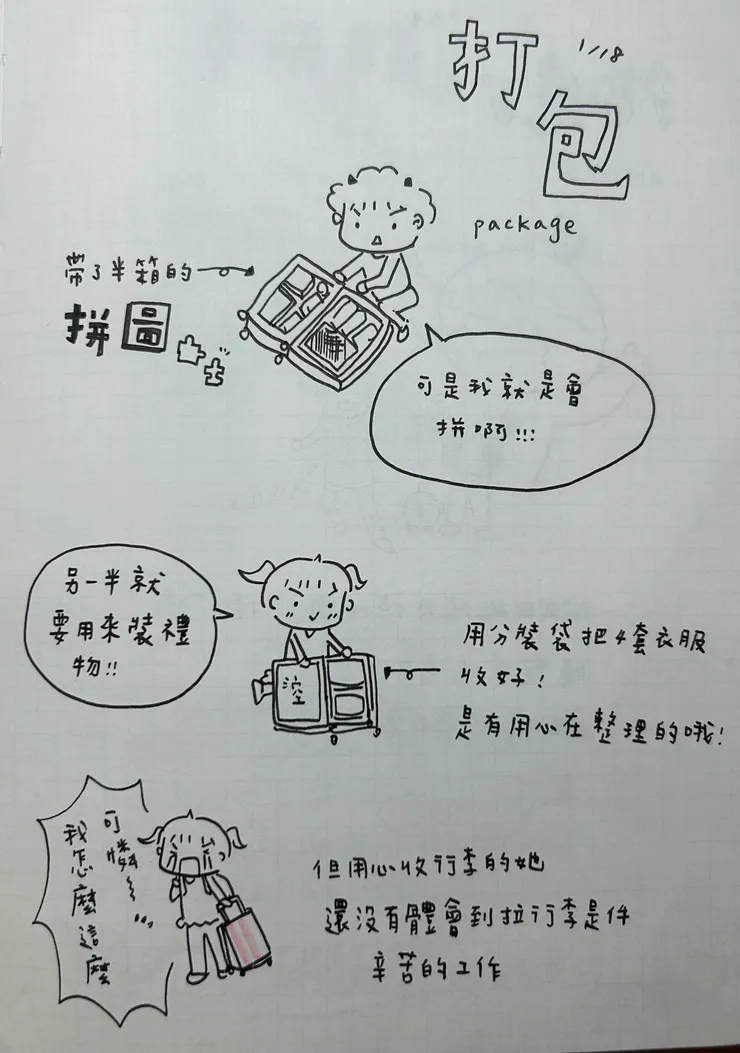 打包
1/18
package
帶了半箱的
拼圖
可是我就是會
拼啊!!!
另一半就
要用來裝禮
物!!
空
用分裝袋把4套衣服
收好!
是有用心在整理的哦!
可憐
我怎麼這麼
但用心收行李的她
還沒有體會到拉行李是件
辛苦的工作